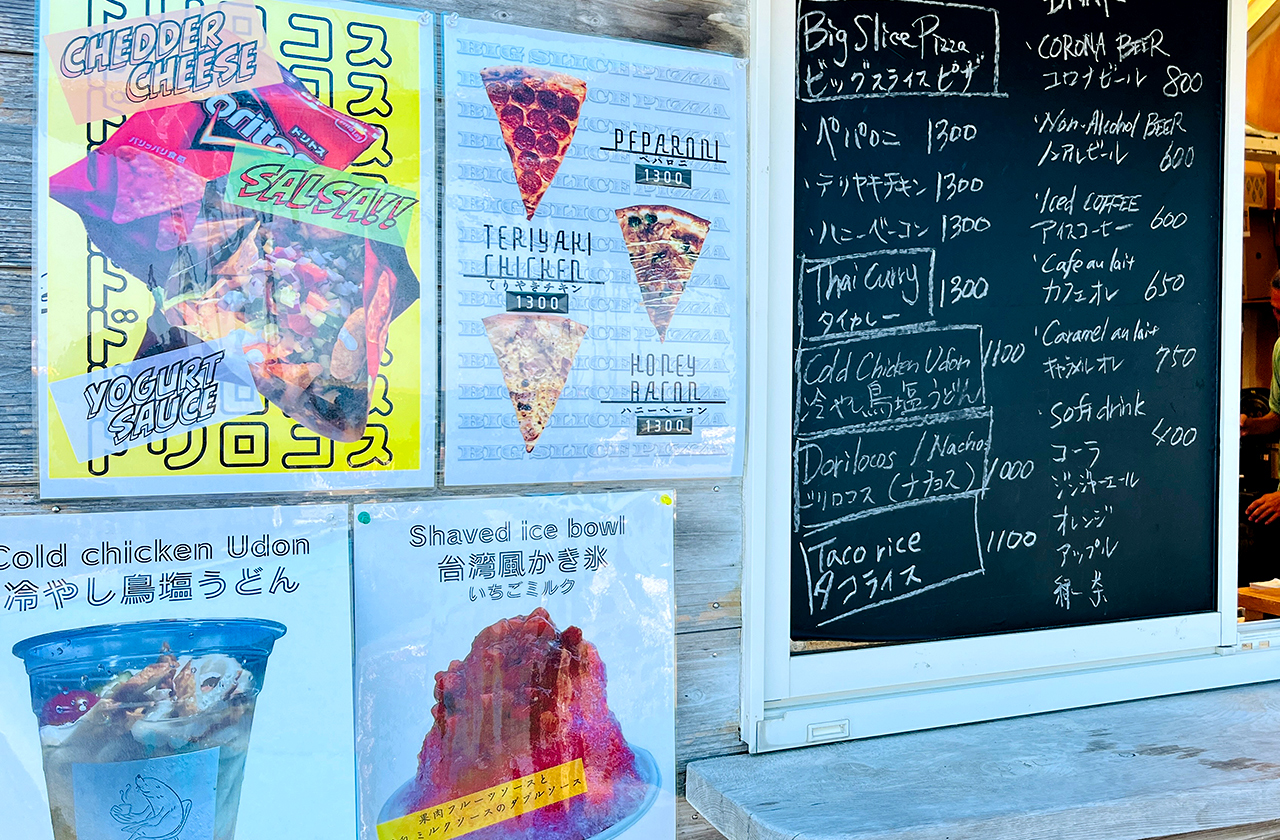 CHEDDER
CHEESE
Doritos
ドリトス
SALSA!!
YOGURT
SAUCE
ドリロコス
BIG SLICE PIZZA
PEPARONI
ペパロニ
1300
TERIYAKI
CHICKEN
てりやきチキン
1300
HONEY
BACON
ハニーベーコン
1300
BIG SLICE PIZZA
Cold chicken Udon
冷やし鳥塩うどん
Shaved ice bowl
台湾風かき氷
いちごミルク
果肉フルーツソースと
ミルクソースのダブルソース
Big Slice Pizza
ビッグスライスピザ
・ペパロニ 1300
・テリヤキチキン 1300
・ハニーベーコン 1300
Thai Curry
タイカレー
1300
Cold Chicken Udon
冷やし鳥塩うどん
1100
Dorilocos / Nachos
ドリロコス (ナチョス)
1000
Taco rice
タコライス
1100
・CORONA BEER
コロナビール 800
・Non-Alcohol BEER
ノンアルビール 600
・Iced COFFEE
アイスコーヒー 600
・Cafe au lait
カフェオレ 650
・Caramel au lait
キャラメルオレ 750
・Soft drink
400
コーラ
ジンジャーエール
オレンジ
アップル